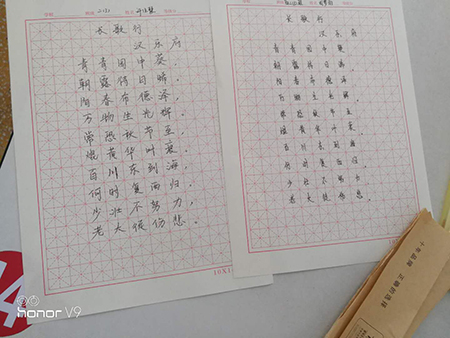 长歌行
汉乐府
青青园中葵
朝露待日晞,
阳春布德泽
万物生光辉,
常恐秋节至,
焜黄华叶衰,
百川东到海,
何时复西归,
少壮不努力,
老大徒伤悲。
长歌行
汉乐府
青青园中葵
朝露待日晞,
阳春布德泽
万物生光辉,
常恐秋节至,
焜黄华叶衰,
百川东到海,
何时复西归,
少壮不努力,
老大徒伤悲。
十年品牌
honor V9